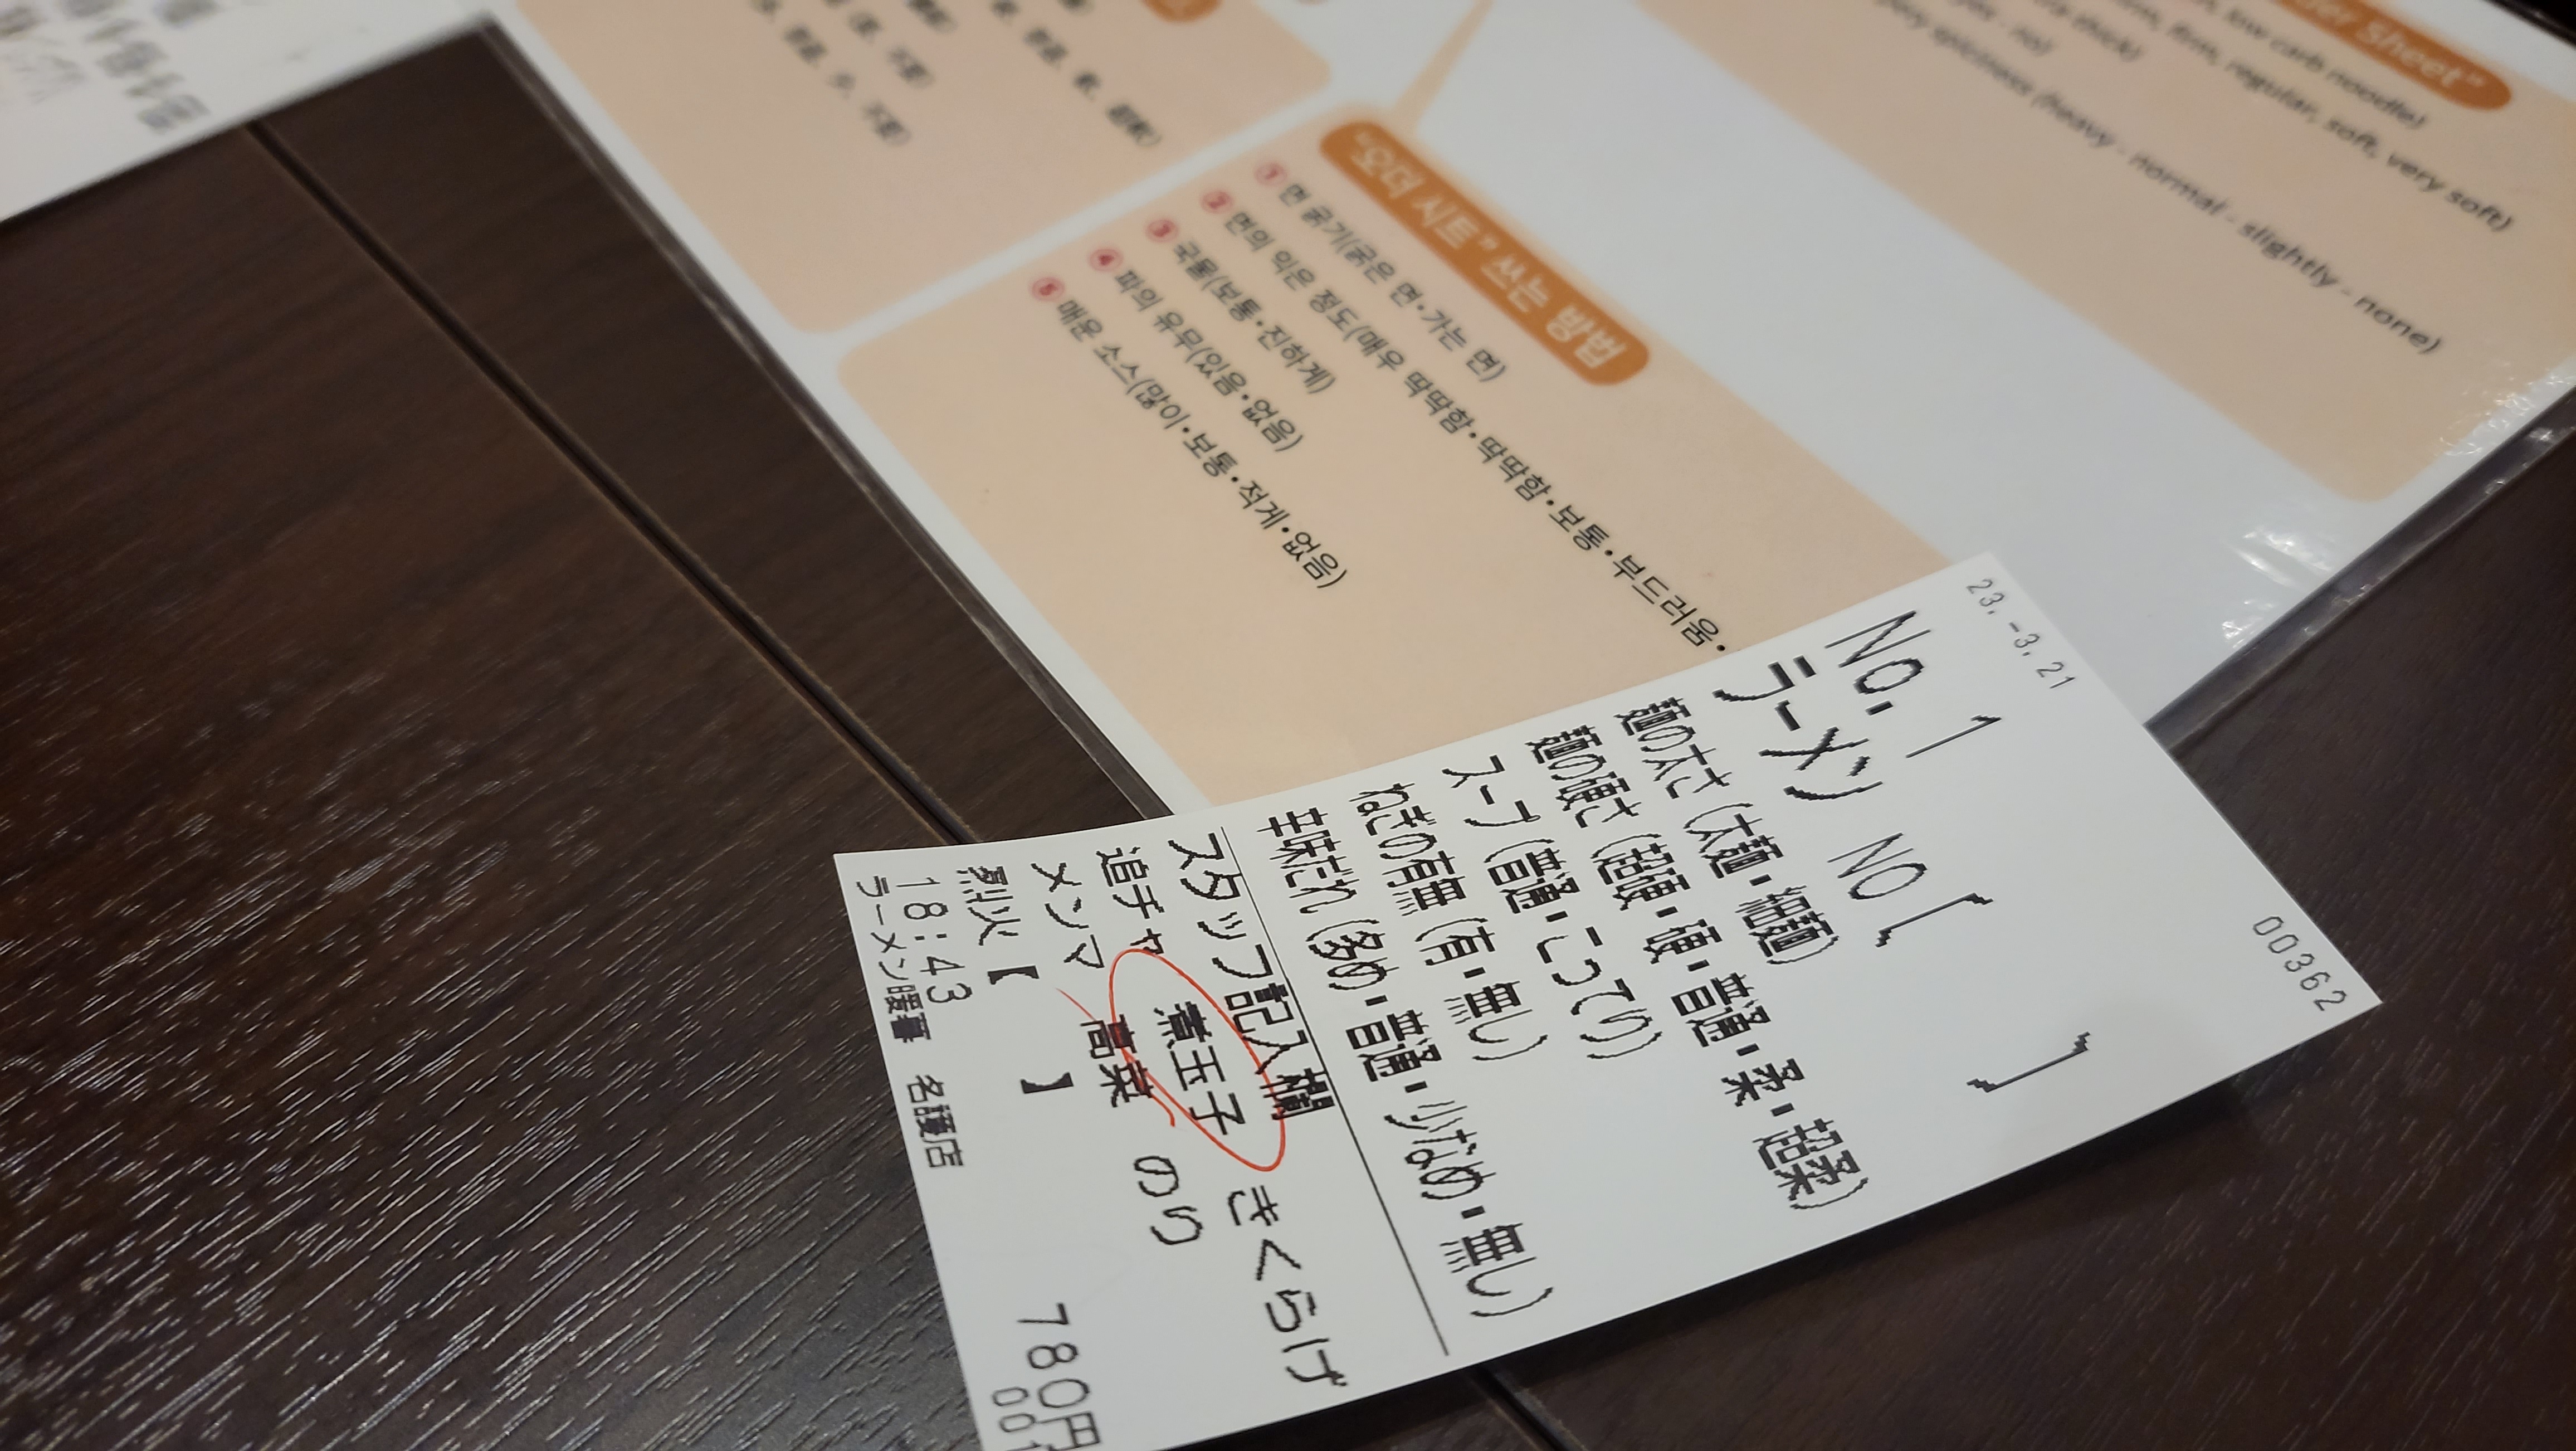 der Sheet"
low carb noodle)
firm, regular, soft, very soft)
yes - no)
spiciness (heavy - normal - slightly - none)
"오더 시트" 쓰는 방법
① 면 굵기(굵은 면•가는 면)
② 면의 익은 정도(매우 딱딱함•딱딱함•보통•부드러움•
③ 국물(보통•진하게)
④ 파의 유무(있음•없음)
⑤ 매운 소스(많이•보통•적게•없음)
23.-3.21 00362
No. 1 NO[ ]
ラーメン
麺の太さ(太麺・細麺)
麺の硬さ(超硬・硬・普通・柔・超柔)
スープ(普通・こってり)
ねぎの有無(有・無し)
辛味だれ(多め・普通・少なめ・無し)
スタッフ記入欄
追チャ 煮玉子 きくらげ
メンマ 高菜 のり
烈火【 】
18:43 780円
ラーメン暖暮 名護店